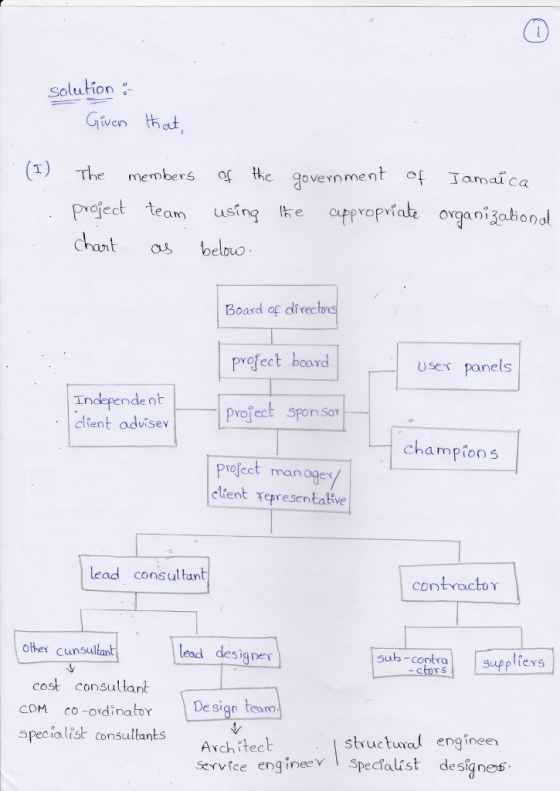 1
Solution :-
Given that,
(I) The members of the government of Jamaica
project team using the appropriate organizational
chart as below.
Board of directors
project board
User panels
Independent
client adviser
project sponsor
champions
project manager/
client representative
lead consultant
contractor
other cunsultant
lead designer
sub-contra
-ctors
suppliers
cost consultant
CDM co-ordinator
specialist consultants
Design team
Architect
service engineer
structural engineer
specialist designers.